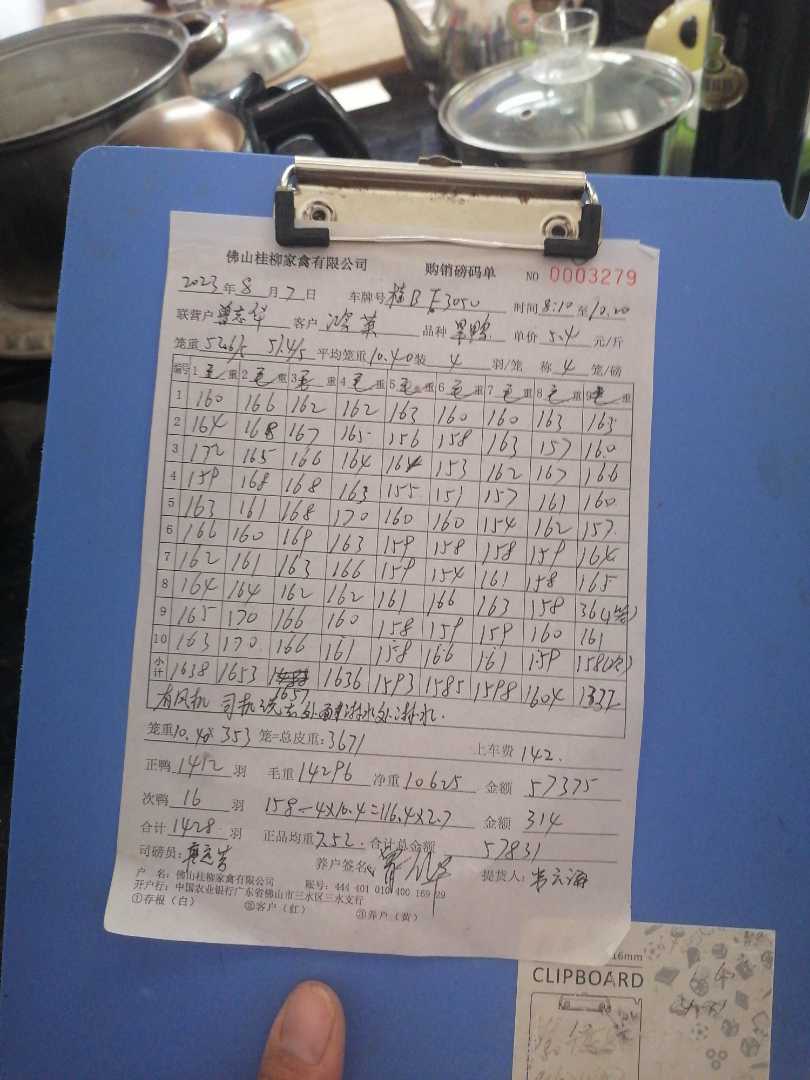 佛山桂柳家禽有限公司 购销磅码单 NO 0003279
2023年8月7日 车牌号 桂B·E3050 时间 8:10至10.20
联营户 曾志华 客户 鸿英 品种 草鸭 单价 5.4 元/斤
笼重 52.6/5 51.4/5 平均笼重 10.40 装 4 羽/笼 称 4 笼/磅
编号 1毛重 2毛重 3毛重 4毛重 5毛重 6毛重 7毛重 8毛重 9毛重
1 160 166 162 162 163 160 160 163 163
2 164 168 167 165 156 158 163 157 160
3 172 165 166 164 164 153 162 167 166
4 159 168 168 163 155 151 157 161 160
5 163 161 168 170 160 160 154 162 157
6 166 160 169 163 159 158 158 159 164
7 162 161 163 166 159 154 161 158 165
8 164 164 162 162 161 166 163 158 36(4笼)
9 165 170 166 160 158 159 159 160 161
10 163 170 166 161 158 166 161 159 158(次)
小计 1638 1653 1657 1636 1593 1585 1598 1604 1332
有风机 司机洗去外面淋水处淋水.
笼重 10.40× 353 笼=总皮重: 3671 上车费 142.
正鸭 1412 羽 毛重 14296 净重 10625 金额 57375
次鸭 16 羽 158-4×10.4=116.4×2.7 金额 314
合计 1428 羽 正品均重 7.52. 合计总金额 57831
司磅员: 养户签名: 提货人:
户 名: 佛山桂柳家禽有限公司 账号: 444 401 010 400 169 29
开户行: 中国农业银行广东省佛山市三水区三水支行
①存根(白) ②客户(红) ③养户(黄)
16mm
CLIPBOARD